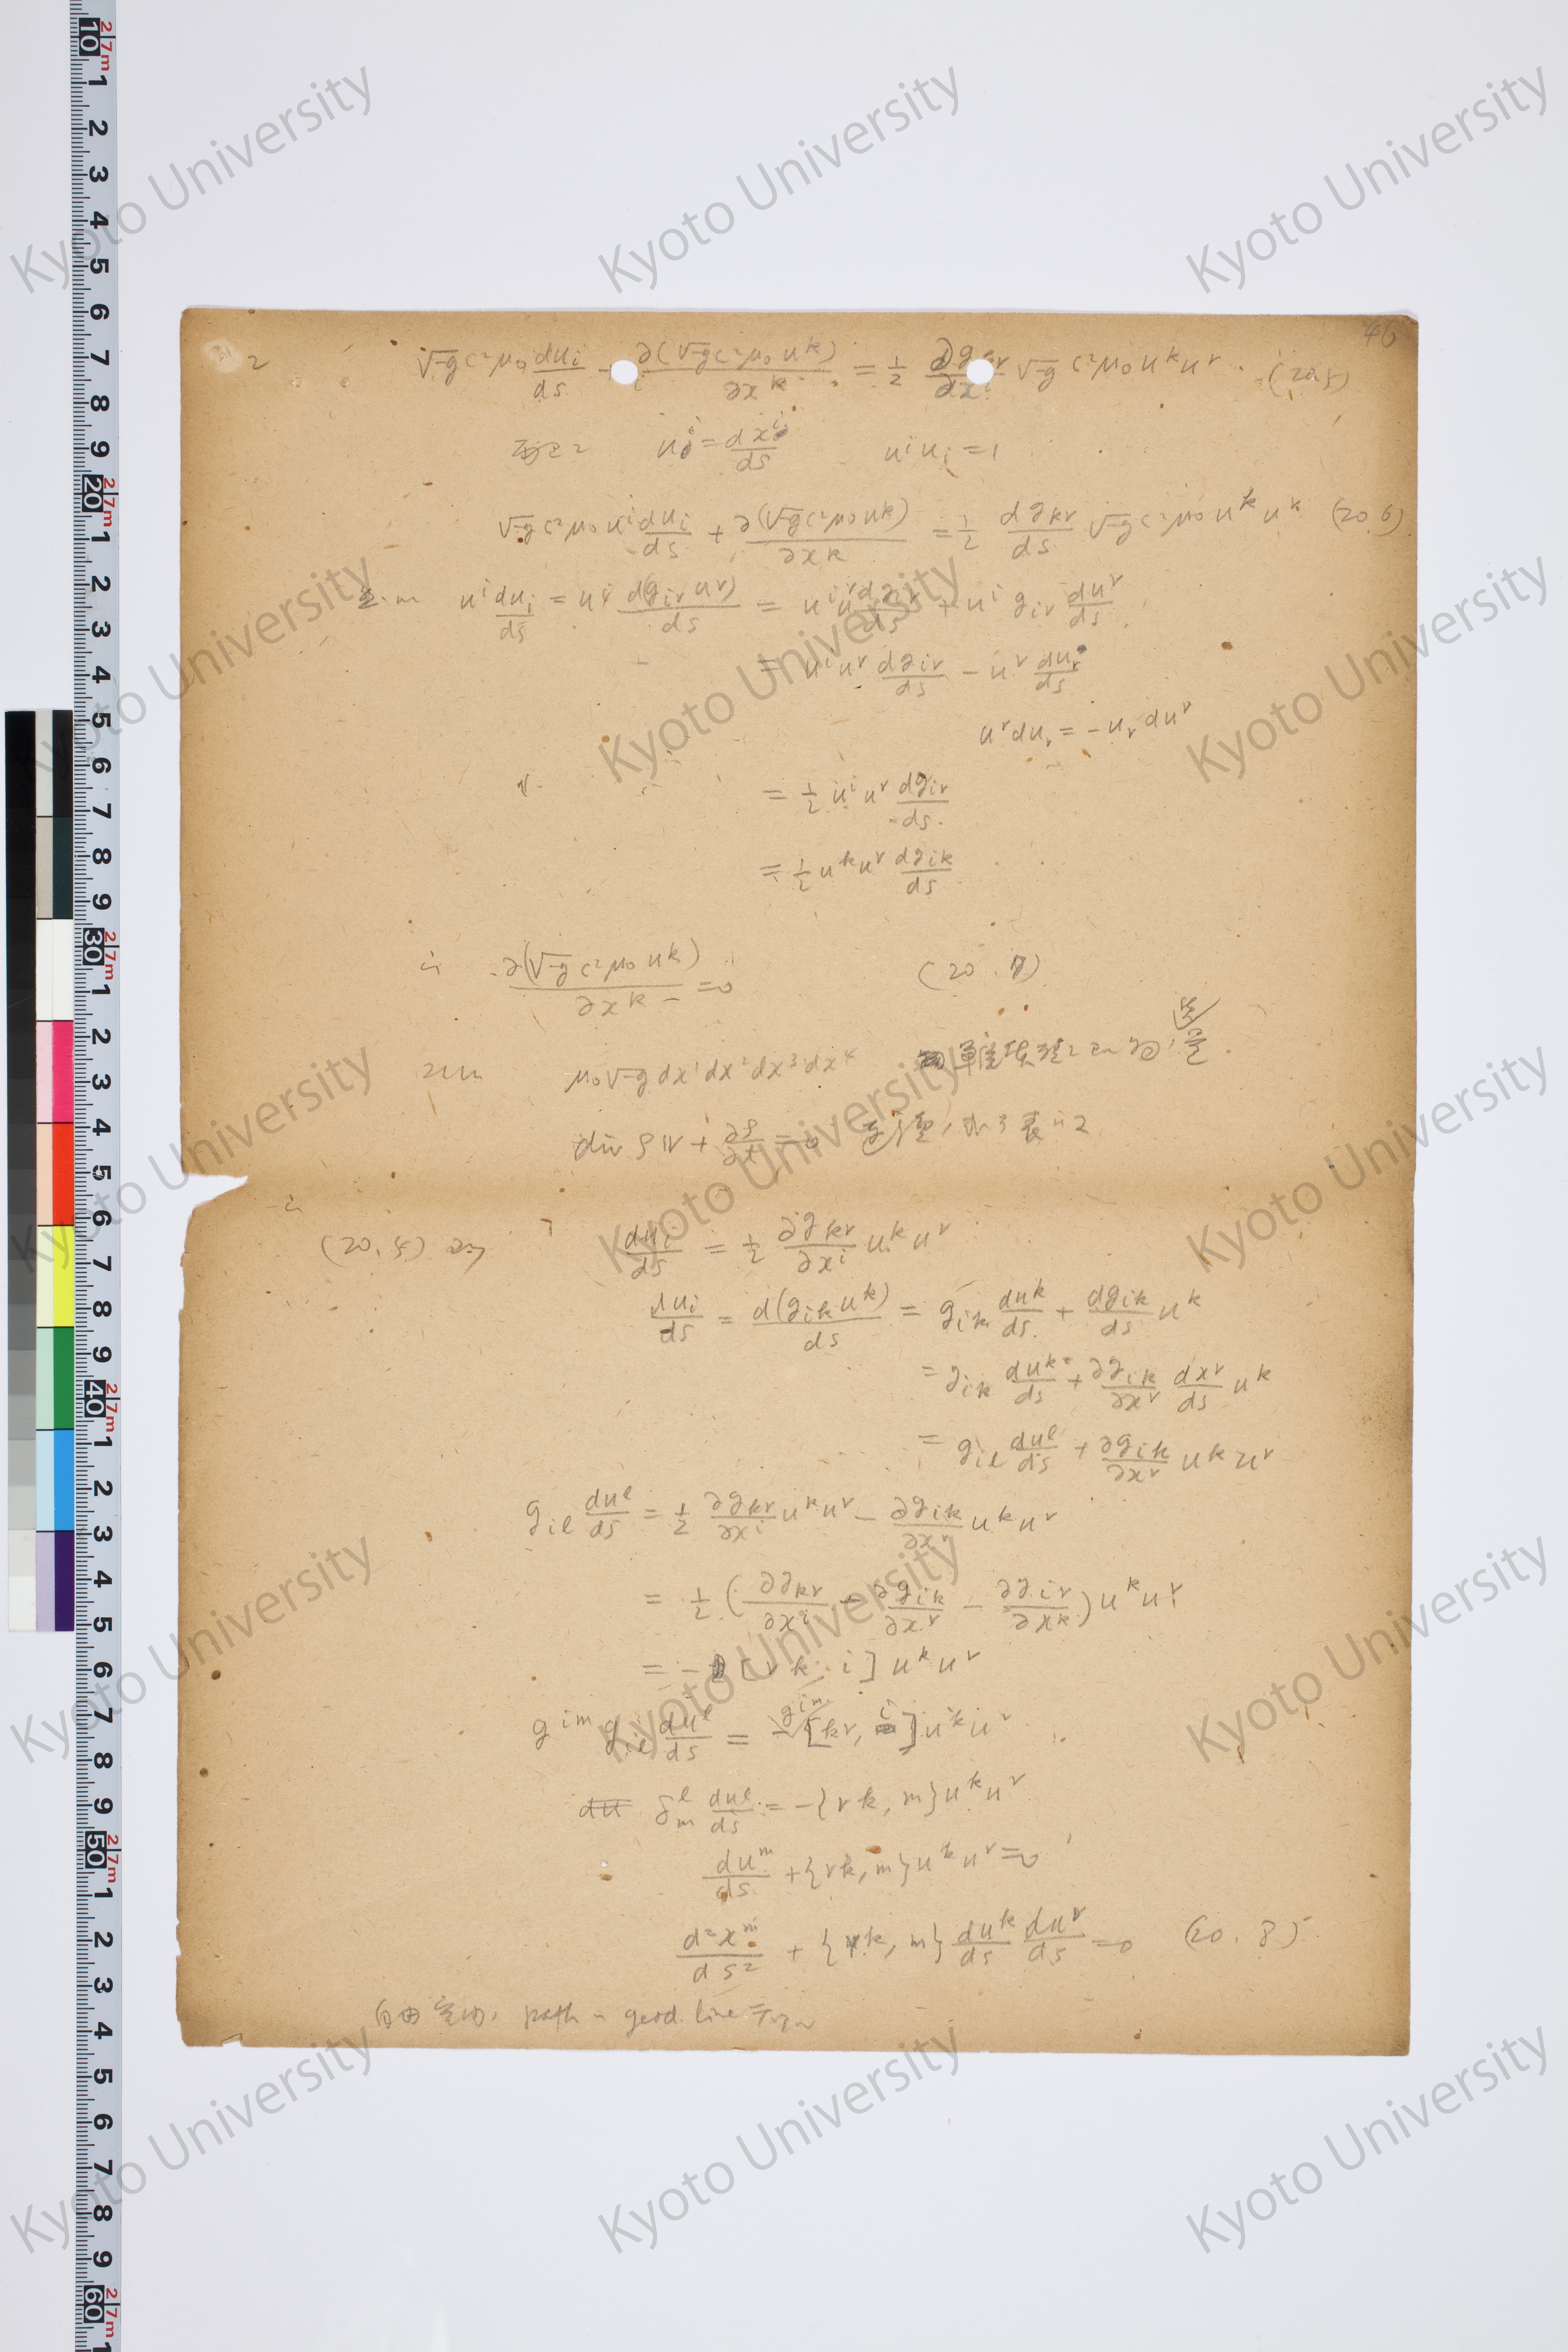 46
2 √-g c²μ₀ du_i/ds + u_i ∂(√-g c²μ₀ u^k)/∂x^k = 1/2 ∂g_kr/∂x^i √-g c²μ₀ u^k u^r . (20.5)
u^i = dx^i/ds u^i u_i = 1
√-g c²μ₀ u^i du_i/ds + ∂(√-g c²μ₀ u^k)/∂x^k = 1/2 dg_kr/ds √-g c²μ₀ u^k u^r (20.6)
u^i du_i/ds = u^i d(g_ir u^r)/ds = u^i u^r dg_ir/ds + u^i g_ir du^r/ds
= u^i u^r dg_ir/ds - u^r du_r/ds
u^r du_r = - u_r du^r
= 1/2 u^i u^r dg_ir/ds
= 1/2 u^k u^r dg_ik/ds
∴ ∂(√-g c²μ₀ u^k)/∂x^k = 0 (20.7)
μ₀ √-g dx¹ dx² dx³ dx⁴
div ρv + ∂ρ/∂t = 0
∴
(20,5) より du_i/ds = 1/2 ∂g_kr/∂x^i u^k u^r
du_i/ds = d(g_ik u^k)/ds = g_ik du^k/ds + dg_ik/ds u^k
= g_ik du^k/ds + ∂g_ik/∂x^r dx^r/ds u^k
= g_il du^l/ds + ∂g_ik/∂x^r u^k u^r
g_il du^l/ds = 1/2 ∂g_kr/∂x^i u^k u^r - ∂g_ik/∂x^r u^k u^r
= 1/2 (∂g_kr/∂x^i - ∂g_ik/∂x^r - ∂g_ir/∂x^k) u^k u^r
= - [rk, i] u^k u^r
g^im g_il du^l/ds = - g^im [kr, i] u^k u^r
du δ^l_m du^l/ds = - {rk, m} u^k u^r
du^m/ds + {rk, m} u^k u^r = 0
d²x^m/ds² + {rk, m} du^k/ds du^r/ds = 0 (20.8)
自由 path geod. line
Kyoto University